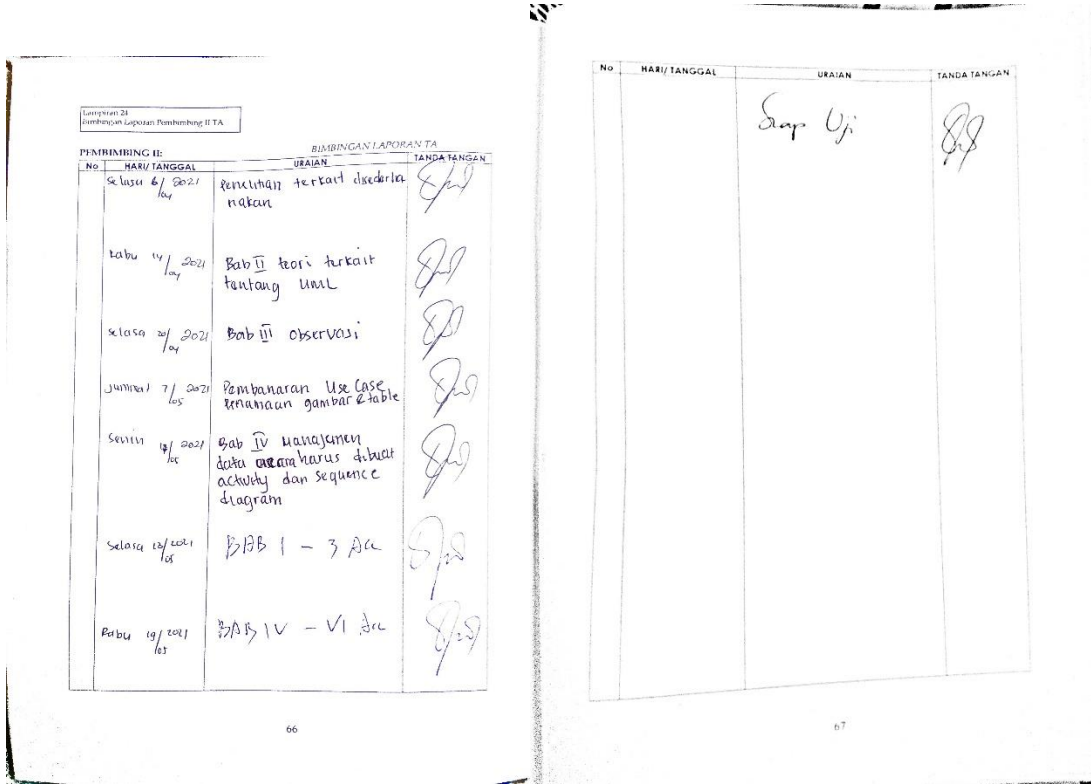 Lampiran 24
Bimbingan Laporan Pembimbing II TA
BIMBINGAN LAPORAN TA
PEMBIMBING II:
No HARI/ TANGGAL URAIAN TANDA TANGAN
Selasa 6/04 2021 Penelitian terkait disederha
nakan
Rabu 14/04 2021 Bab II teori terkait
tentang UML
Selasa 20/04 2021 Bab III observasi
Jummat 7/05 2021 Pembanaran Use Case
Penamaan gambar & table
Senin /05 2021 Bab IV Manajemen
data harus dibuat
activity dan sequence
diagram
Selasa /05 2021 BAB 1 - 3 Acc
Rabu 19/05 2021 BAB IV - VI Acc
66
No HARI/ TANGGAL URAIAN TANDA TANGAN
Siap Uji
67